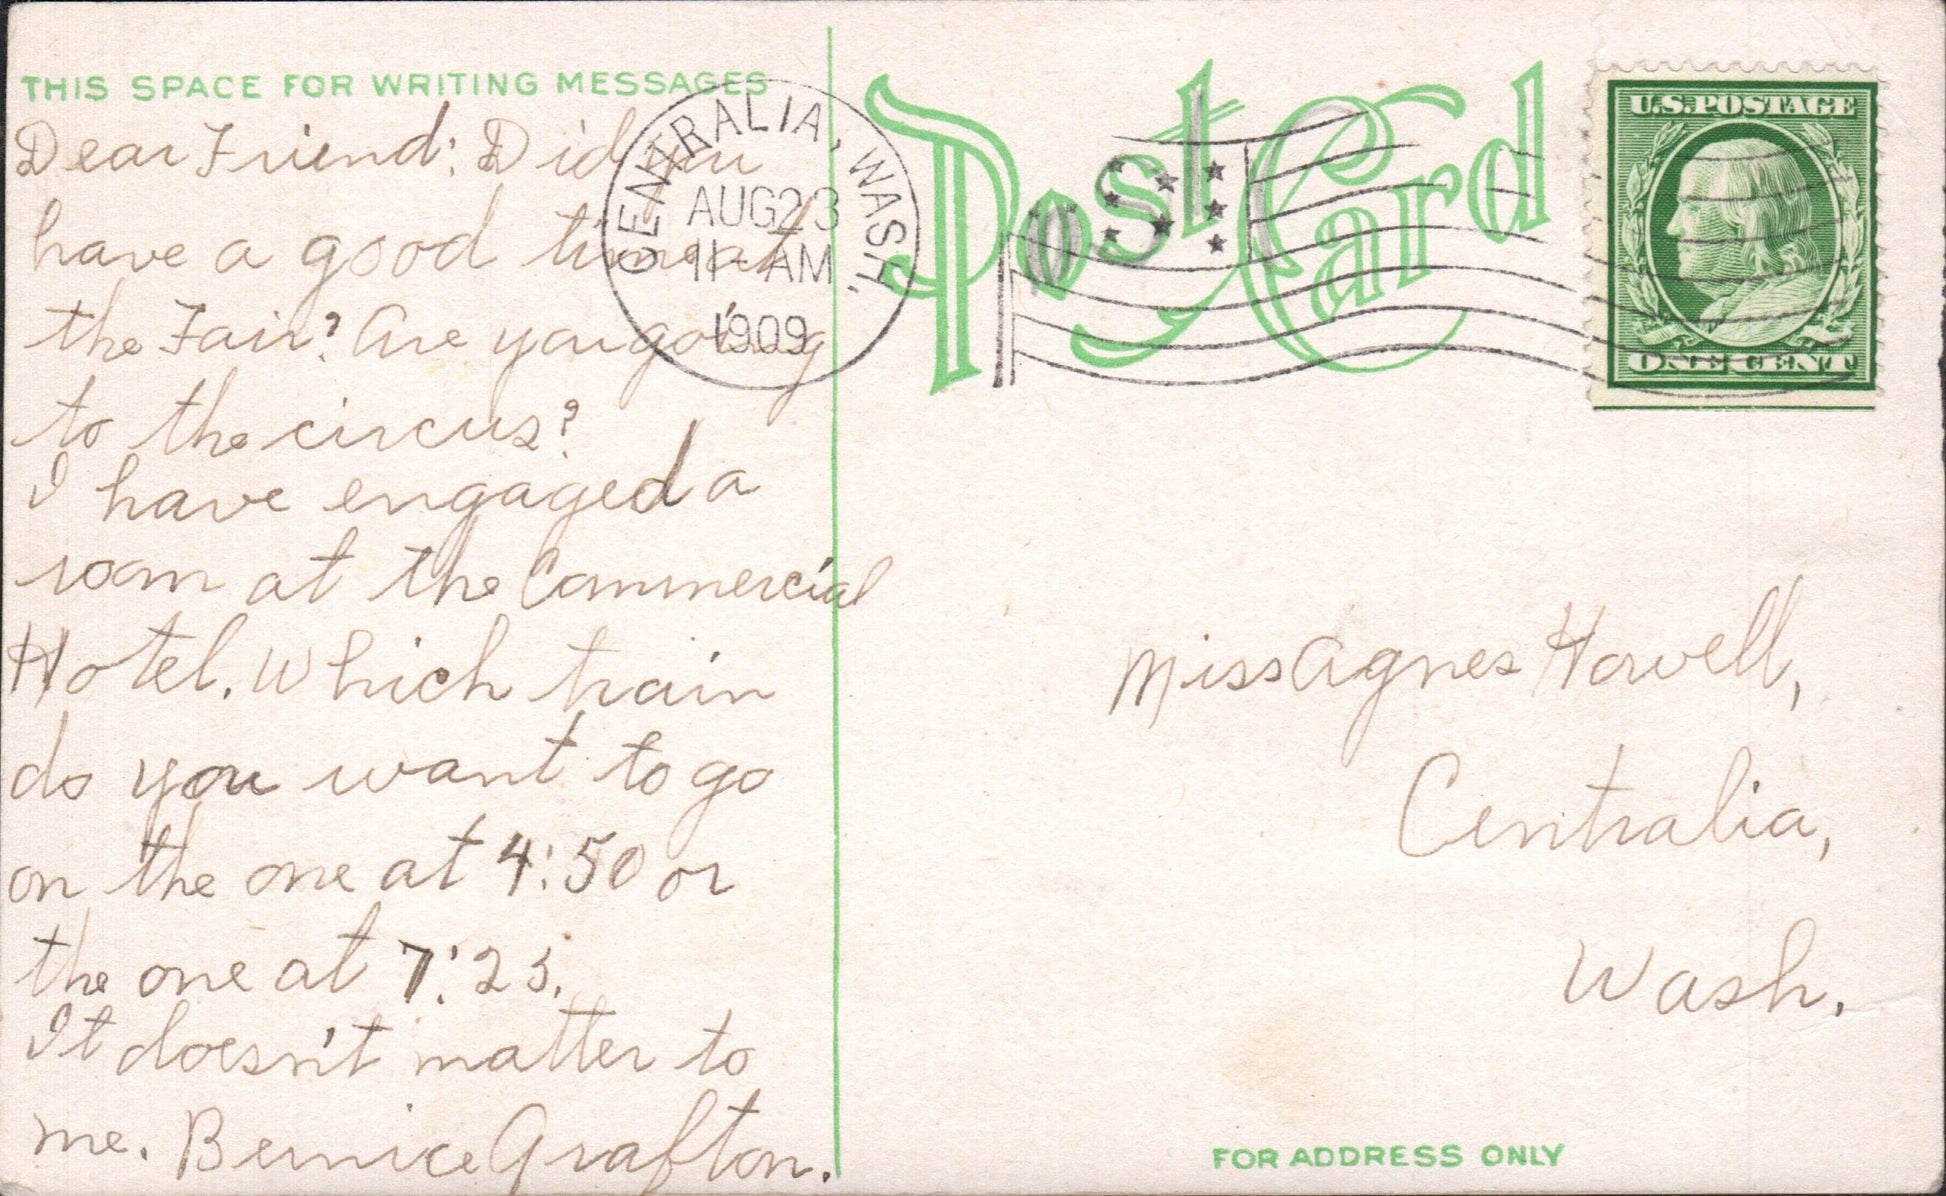 THIS SPACE FOR WRITING MESSAGES
Dear Friend: Did you
have a good time at
the Fair? Are you going
to the circus?
I have engaged a
room at the Commercial
Hotel. Which train
do you want to go
on the one at 4:50 or
the one at 7:25.
It doesn't matter to
me. Bernice Grafton.
CENTRALIA, WASH.
AUG 23
11-AM
1909
Post Card
U.S. POSTAGE
ONE CENT
Miss Agnes Howell,
Centralia,
Wash.
FOR ADDRESS ONLY